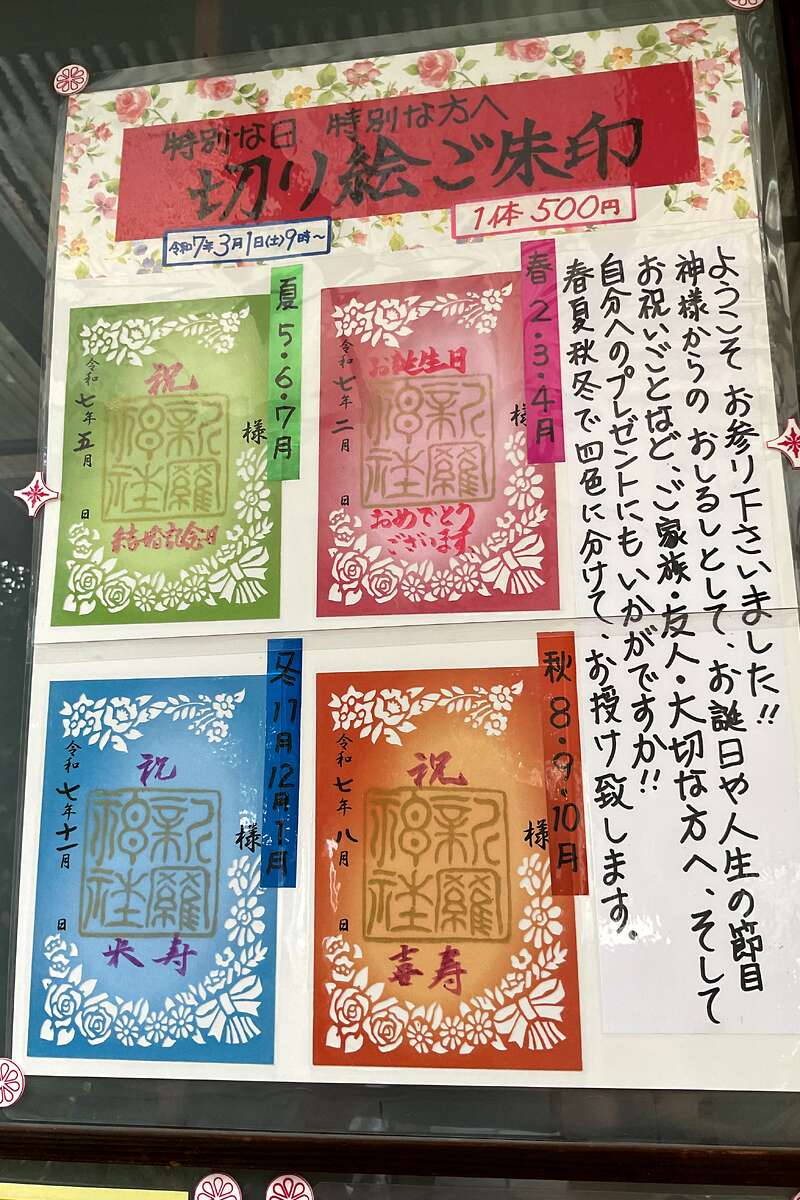 特別な日 特別な方へ
切り絵ご朱印
1体 500円
令和7年3月1日(土)9時~
ようこそ お参り下さいました!!
神様からの おしるしとして、お誕日や人生の節目
お祝いごとなど、ご家族・友人・大切な方へ、そして
自分へのプレゼントにもいかがですか!!
春夏秋冬で四色に分けて、お授け致します。
春 2・3・4月
お誕生日
令和七年二月 日
様
新羅神社
おめでとう
ございます
夏 5・6・7月
祝
令和七年五月 日
様
新羅神社
結婚記念日
秋 8・9・10月
祝
令和七年八月 日
様
新羅神社
喜寿
冬 11月12月1月
祝
令和七年十一月 日
様
新羅神社
米寿